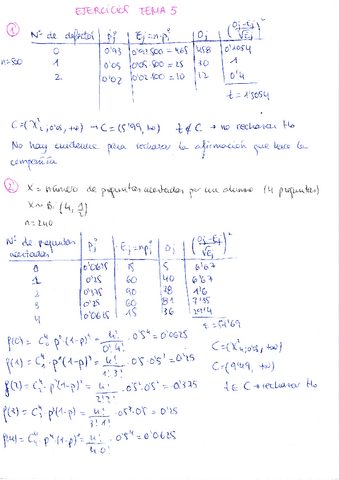 EJERCICIOS TEMA 5
① Nº de defectos | Pj | Ej=n·pj | Oj | (Oj-Ej/√Ej)²
0 | 0'93 | 0'93·500=465 | 458 | 0'1054
n=500 1 | 0'05 | 0'05·500=25 | 30 | 1
2 | 0'02 | 0'02·500=10 | 12 | 0'4
t=1'5054
C=(χ²2;0'05,+∞) → C=(5'99,+∞) t∉C → no rechazar H0
No hay evidencia para rechazar la afirmación que hace la
compañía
② X = número de preguntas acertadas por un alumno (4 preguntas)
X ~ B(4, 1/2)
n=240
Nº de preguntas acertadas | Pj | Ej=npj | Oj | (Oj-Ej/√Ej)²
0 | 0'0625 | 15 | 5 | 6'67
1 | 0'25 | 60 | 40 | 6'67
2 | 0'375 | 90 | 78 | 1'6
3 | 0'25 | 60 | 81 | 7'35
4 | 0'0625 | 15 | 36 | 29'4
t=51'69
p(0)=C⁴₀ p⁰(1-p)⁴=4!/0!4!·0'5⁴=0'0625
p(1)=C⁴₁·p¹(1-p)³=4!/1!3!·0'5·0'5³=0'25
C=(χ²4;0'05,+∞)
C=(9'49,+∞)
p(2)=C⁴₂·p²(1-p)²=4!/2!2!·0'5²·0'5²=0'375
t∈C→rechazar H0
p(3)=C⁴₃·p³(1-p)=4!/3!1!·0'5³·0'5=0'25
p(4)=C⁴₄·p⁴(1-p)⁰=4!/4!0!·0'5⁴=0'0625